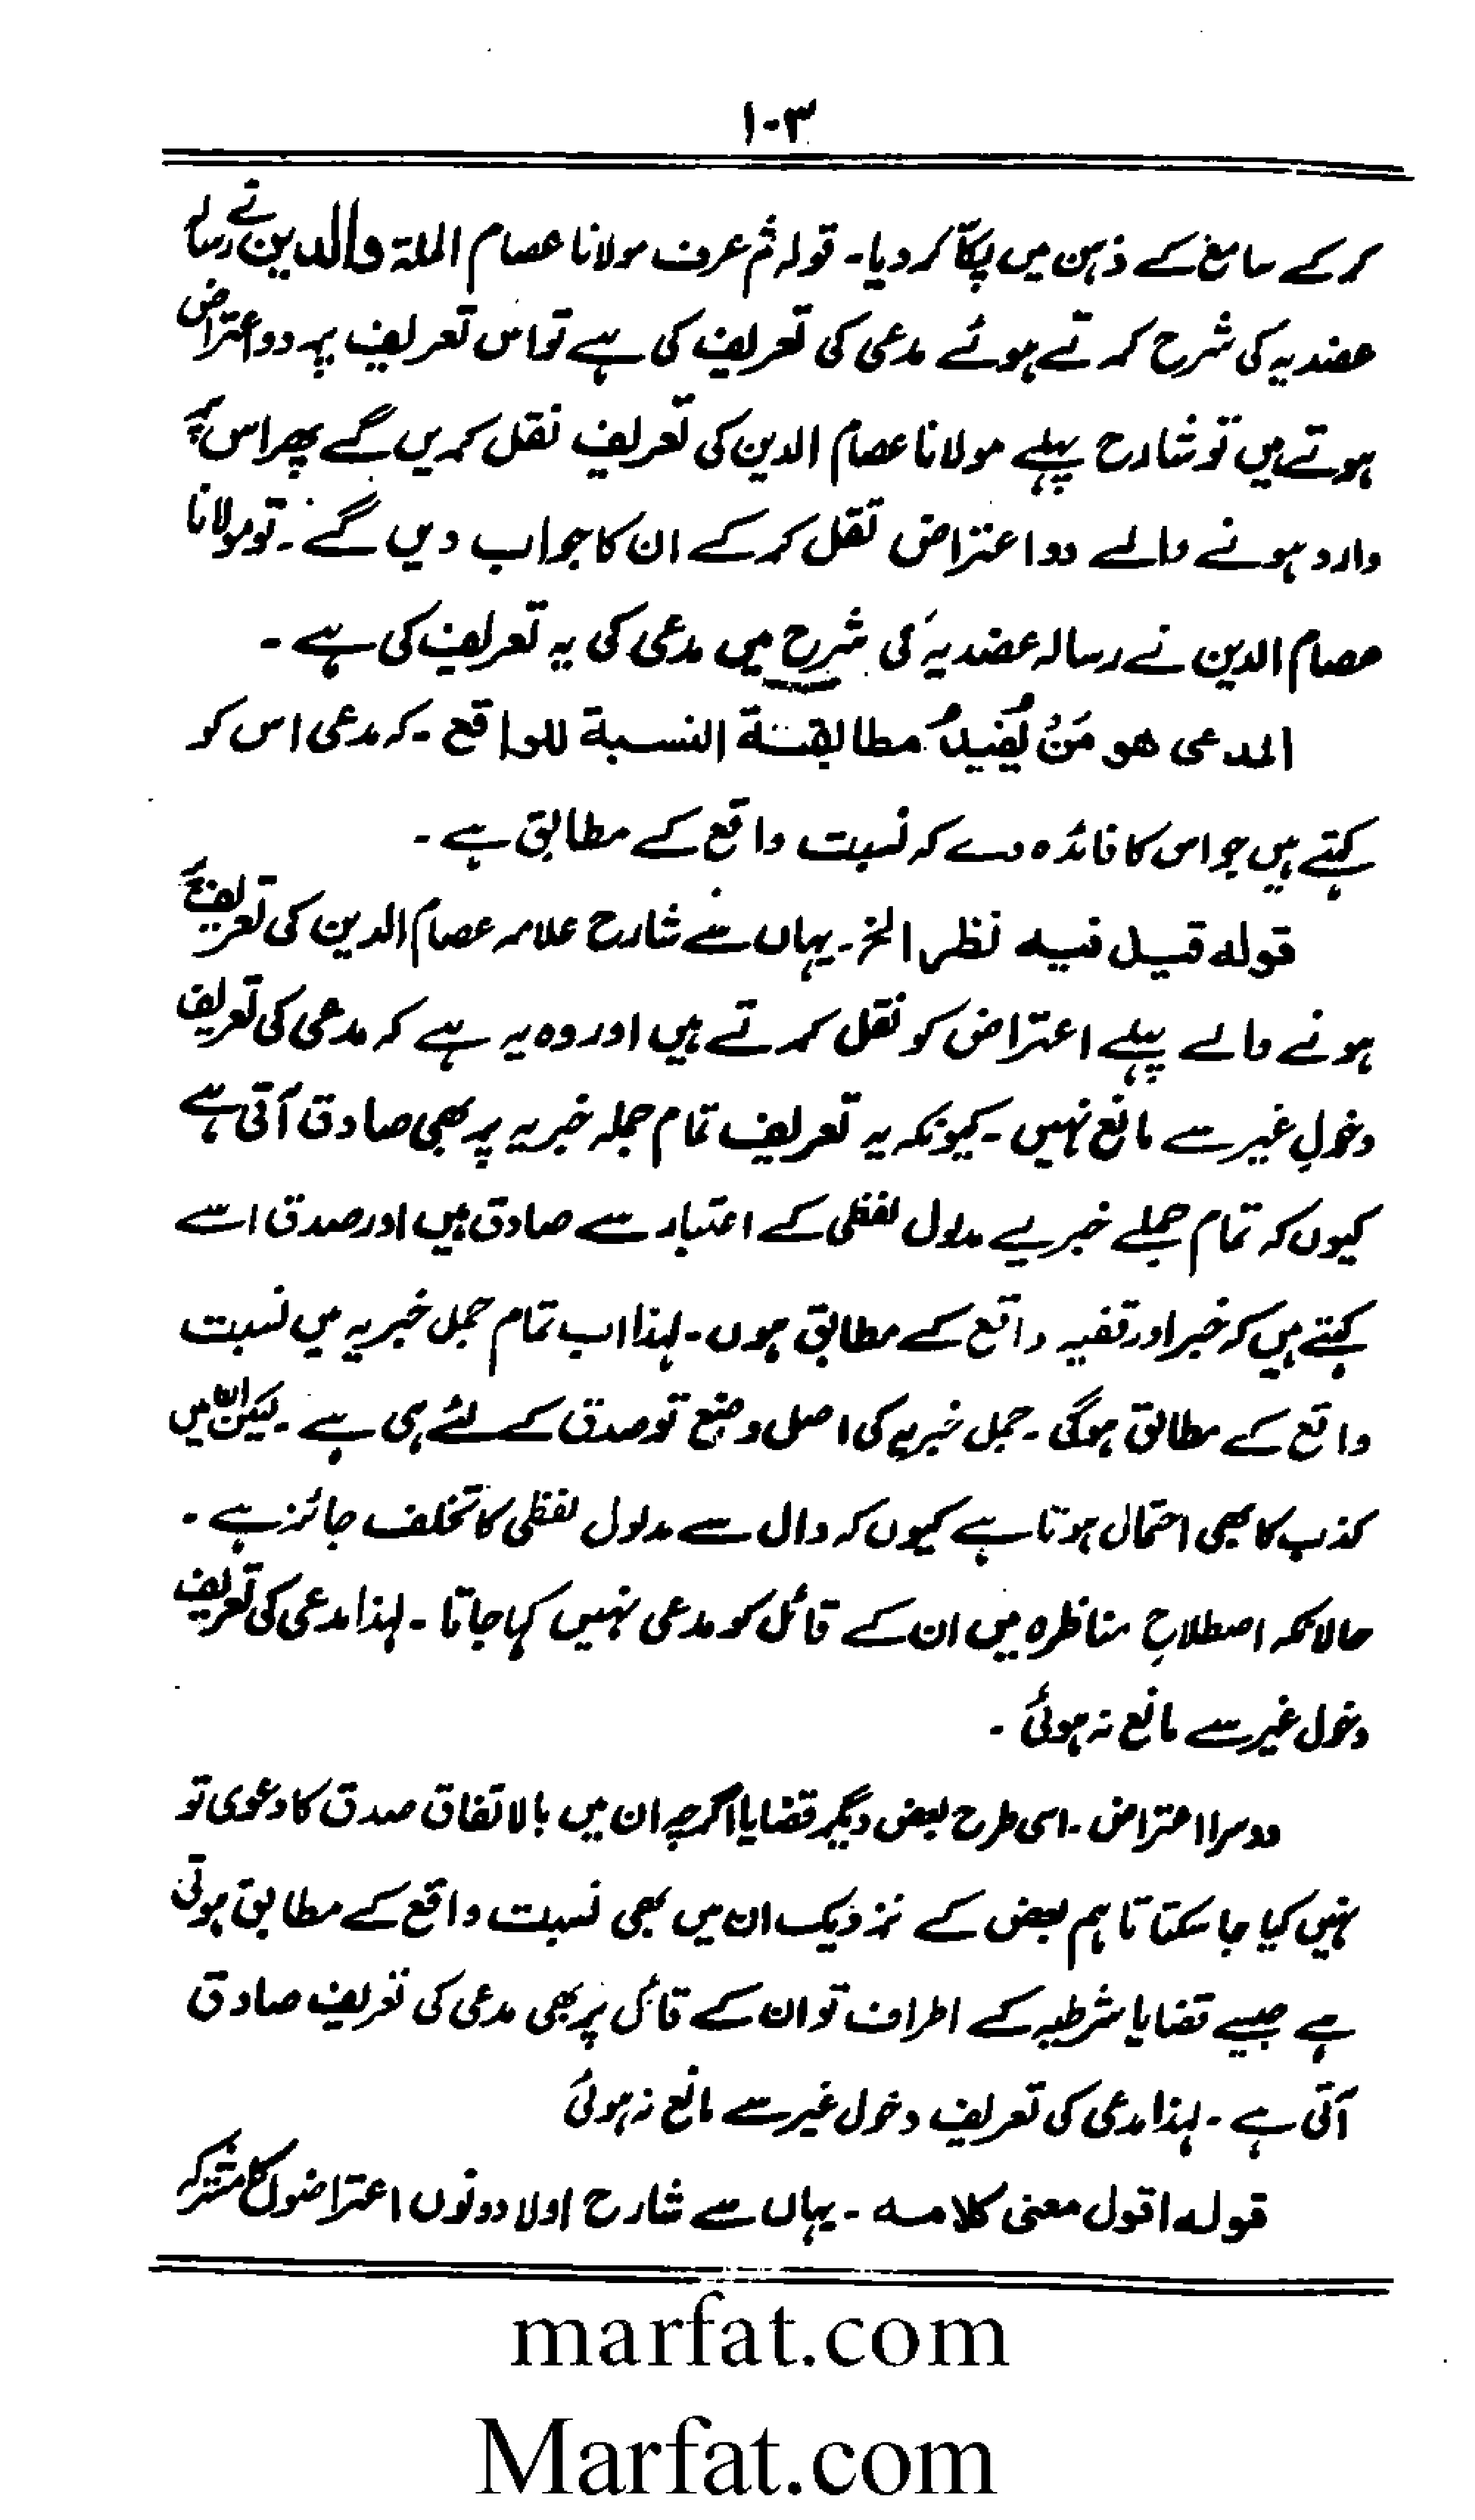 ۱۰۳
کر کے سامع کے ذہن میں پکا کر دیا۔ قولہ ثم عرف مولانا عصام الملۃ والدین نے رسالہ
عضدیہ کی شرح کرتے ہوئے مدعی کی تعریف کی ہے تو اس تعریف پہ دو اعتراض
ہوتے ہیں تو شارح پہلے مولانا عصام الدین کی تعریف نقل کریں گے پھر اس پہ
وارد ہونے والے دو اعتراض نقل کر کے ان کا جواب دیں گے۔ تو مولانا
عصام الدین نے رسالہ عضدیہ کی شرح میں مدعی کی یہ تعریف کی ہے۔
المدعی ھو مَنْ یُفِیدُ مطابقۃ النسبۃ للواقع۔ کہ مدعی اس کو
کہتے ہیں جو اس کا فائدہ دے کہ نسبت واقع کے مطابق ہے۔
قولہ قیل فیہ نظر الخ۔ یہاں سے شارح علامہ عصام الدین کی تعریف پہ
ہونے والے پہلے اعتراض کو نقل کرتے ہیں اور وہ یہ ہے کہ مدعی کی تعریف
دخولِ غیر سے مانع نہیں۔ کیونکہ یہ تعریف تمام جملہ خبریہ پر بھی صادق آتی ہے
کیوں کہ تمام جملے خبریے مدلول لفظی کے اعتبار سے صادق ہیں اور صدق اسے
کہتے ہیں کہ خبر اور قضیہ واقع کے مطابق ہوں۔ لہذا اب تمام جمل خبریہ میں نسبت
واقع کے مطابق ہوگی۔ جمل خبریہ کی اصل وضع تو صدق کے لئے ہی ہے۔ لیکن ان میں
کذب کا بھی احتمال ہوتا ہے کیوں کہ دال سے مدلول لفظی کا تخلف جائز ہے۔
حالانکہ اصطلاحِ مناظرہ میں ان کے قائل کو مدعی نہیں کہا جاتا۔ لہذا مدعی کی تعریف
دخول غیر سے مانع نہ ہوئی۔
دوسرا اعتراض۔ اسی طرح بعض دیگر قضایا اگرچہ ان میں بالاتفاق صدق کا دعوی تو
نہیں کیا جا سکتا تاہم بعض کے نزدیک ان میں بھی نسبت واقع کے مطابق ہوتی
ہے جیسے قضایا شرطیہ کے اطراف تو ان کے قائل پر بھی مدعی کی تعریف صادق
آتی ہے۔ لہذا مدعی کی تعریف دخول غیر سے مانع نہ ہوئی
قولہ اقول معنی کلامہ۔ یہاں سے شارح اولا دونوں اعتراضوں کا مشترکہ
marfat.com
Marfat.com